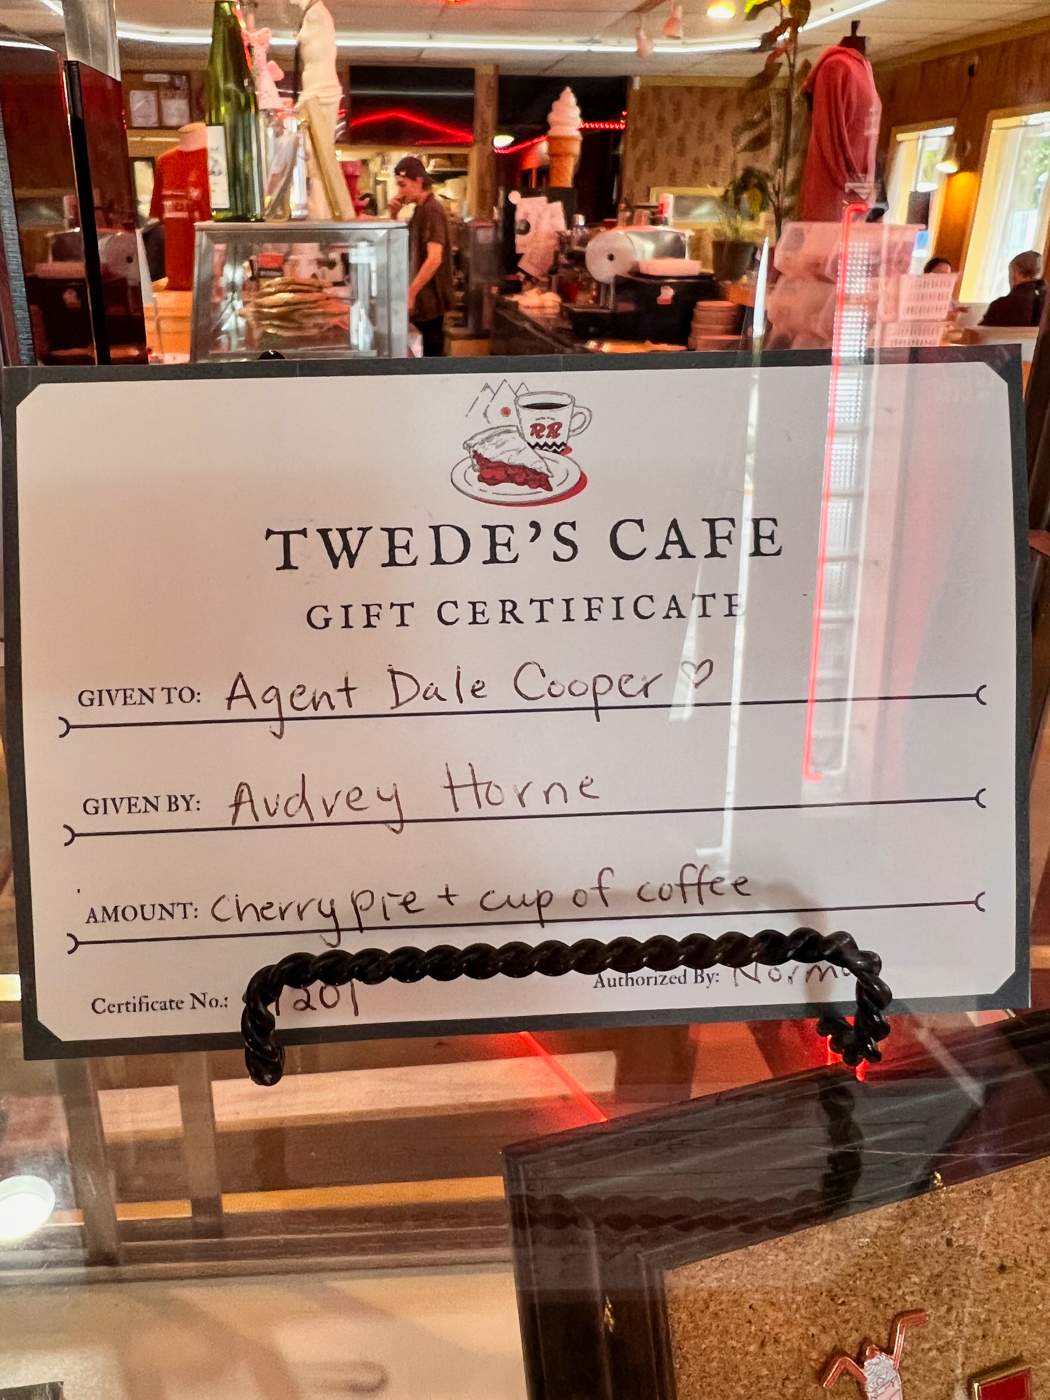 RR
TWEDE'S CAFE
GIFT CERTIFICATE
GIVEN TO: Agent Dale Cooper ♡
GIVEN BY: Audrey Horne
AMOUNT: Cherry pie + cup of coffee
Authorized By: Norma
Certificate No.: